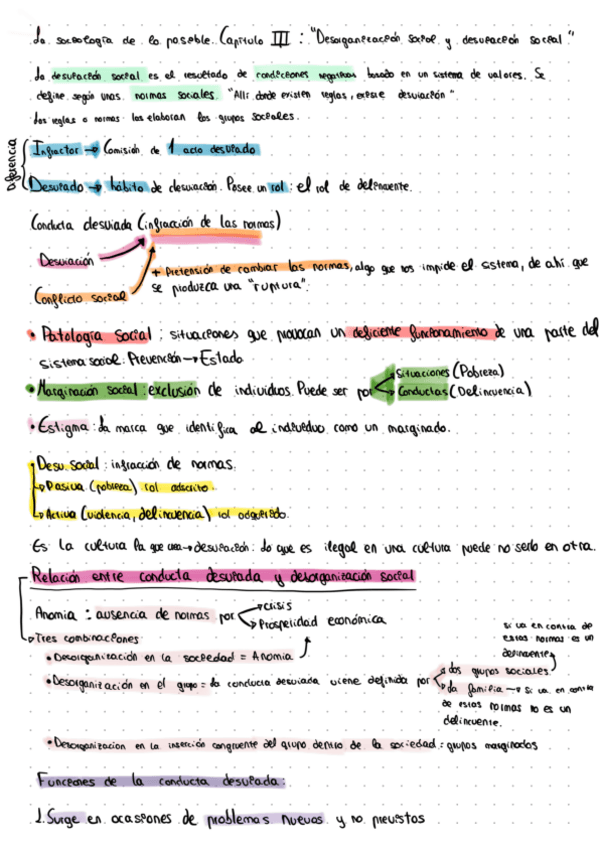 La sociología de lo posible. Capítulo III: "Desorganización social y desviación social."
La desviación social es el resultado de condiciones negativas basado en un sistema de valores. Se
define según unas normas sociales. "Allí donde existen reglas, existe desviación"
Las reglas o normas las elaboran los grupos sociales.
Diferencia
Infractor → Comisión de 1 acto desviado
Desviado → hábito de desviación. Posee un rol: el rol de delincuente.
Conducta desviada (infracción de las normas)
Desviación
Conflicto social
+ Pretensión de cambiar las normas, algo que nos impide el sistema, de ahí que
se produzca una "ruptura".
• Patología Social: situaciones que provocan un deficiente funcionamiento de una parte del
sistema social. Prevención → Estado
• Marginación social: exclusión de individuos. Puede ser por
Situaciones (Pobreza)
Conductas (Delincuencia)
• Estigma: La marca que identifica al individuo como un marginado.
• Desv. Social: infracción de normas.
↳ Pasiva (pobreza) rol adscrito.
↳ Activa (violencia, delincuencia) rol adquirido.
Es la cultura la que crea → desviación: lo que es ilegal en una cultura puede no serlo en otra.
Relación entre conducta desviada y desorganización social
Anomia: ausencia de normas por
crisis
Prosperidad económica
Tres combinaciones:
• Desorganización en la sociedad = Anomia
• Desorganización en el grupo = la conducta desviada viene definida por
los grupos sociales.
si va en contra de
estas normas es un
delincuente
La familia → Si va en contra
de estas normas no es un
delincuente.
• Desorganización en la inserción congruente del grupo dentro de la sociedad = grupos marginados
Funciones de la conducta desviada:
1. Surge en ocasiones de problemas nuevos y no previstos